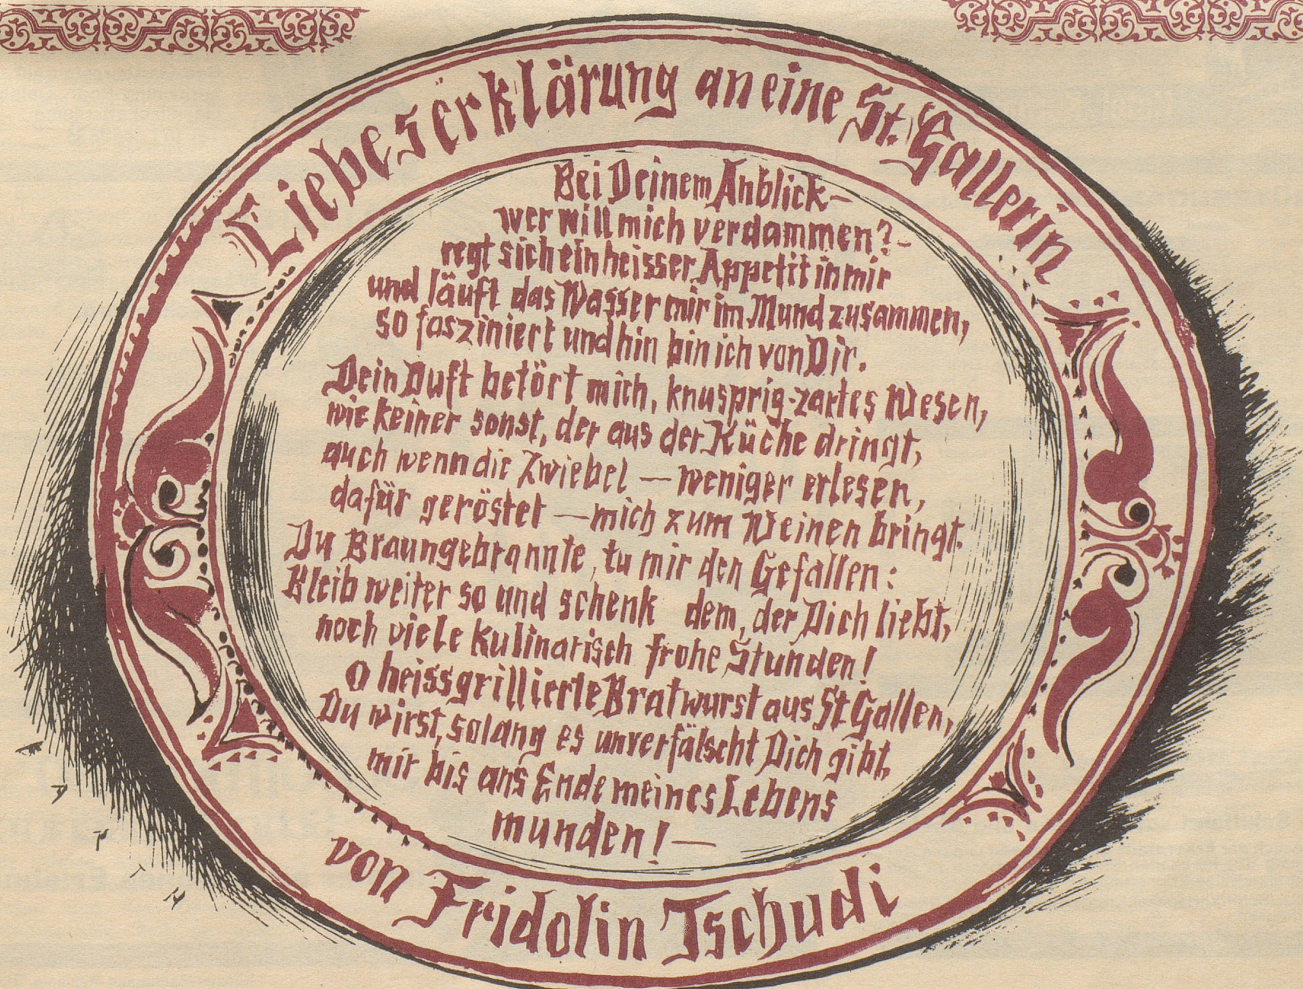 Liebeserklärung an eine St. Gallerin
Bei Deinem Anblick –
wer will mich verdammen? –
regt sich ein heisser Appetit in mir
und läuft das Wasser mir im Mund zusammen,
so fasziniert und hin bin ich von Dir.
Dein Duft betört mich, knusprig-zartes Wesen,
wie keiner sonst, der aus der Küche dringt,
auch wenn die Zwiebel – weniger erlesen,
dafür geröstet – mich zum Weinen bringt.
Du Braungebrannte, tu mir den Gefallen:
Bleib weiter so und schenk dem, der Dich liebt,
noch viele kulinarisch frohe Stunden!
O heissgrillierte Bratwurst aus St Gallen,
Du wirst, solang es unverfälscht Dich gibt,
mir bis ans Ende meines Lebens
munden! –
von Fridolin Tschudi